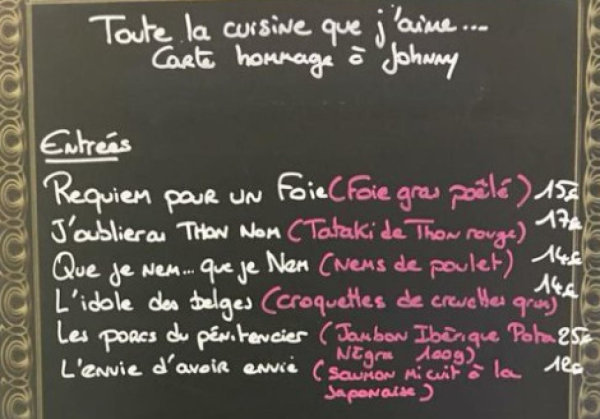 Toute la cuisine que j'aime...
Carte hommage à Johnny
Entrées
Requiem pour un Foie (Foie gras poêlé) 15€
J'oublierai THON Nom (Tataki de Thon rouge) 17€
Que je Nem... que je Nem (Nems de poulet) 14€
L'idole des belges (croquettes de crevettes grises) 14€
Les porcs du pénitencier (Jambon Ibérique Pata 25€
Nègra 100g)
L'envie d'avoir envie (saumon micuit à la 12€
Japonaise)